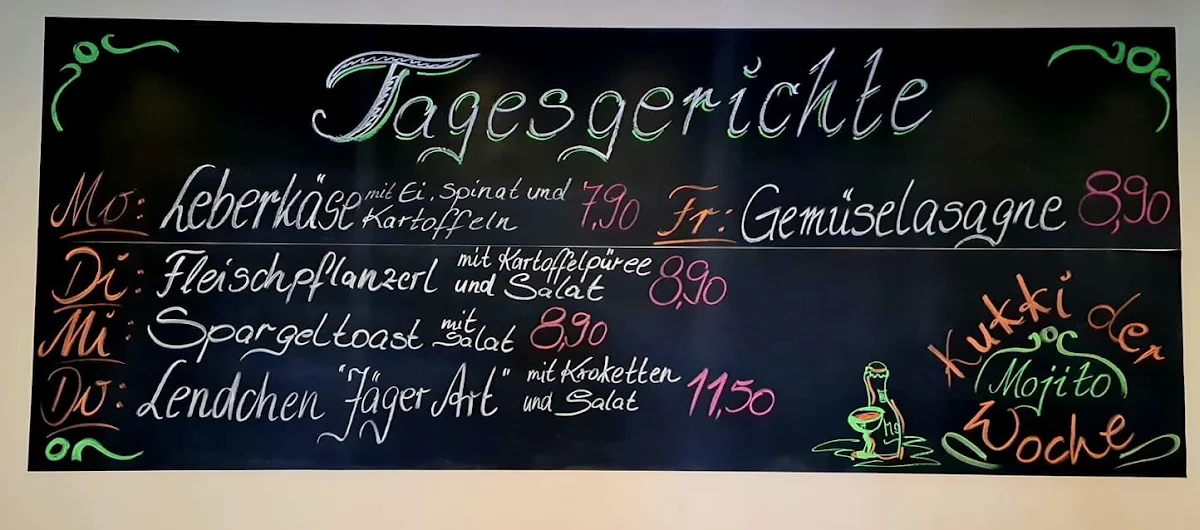 Tagesgerichte
Mo: Leberkäse mit Ei, Spinat und Kartoffeln 7,90
Fr: Gemüselasagne 8,90
Di: Fleischpflanzerl mit Kartoffelpüree und Salat 8,90
Mi: Spargeltoast mit Salat 8,90
Do: Lendchen "Jäger Art" mit Kroketten und Salat 11,50
Kukki der
Woche
Mojito